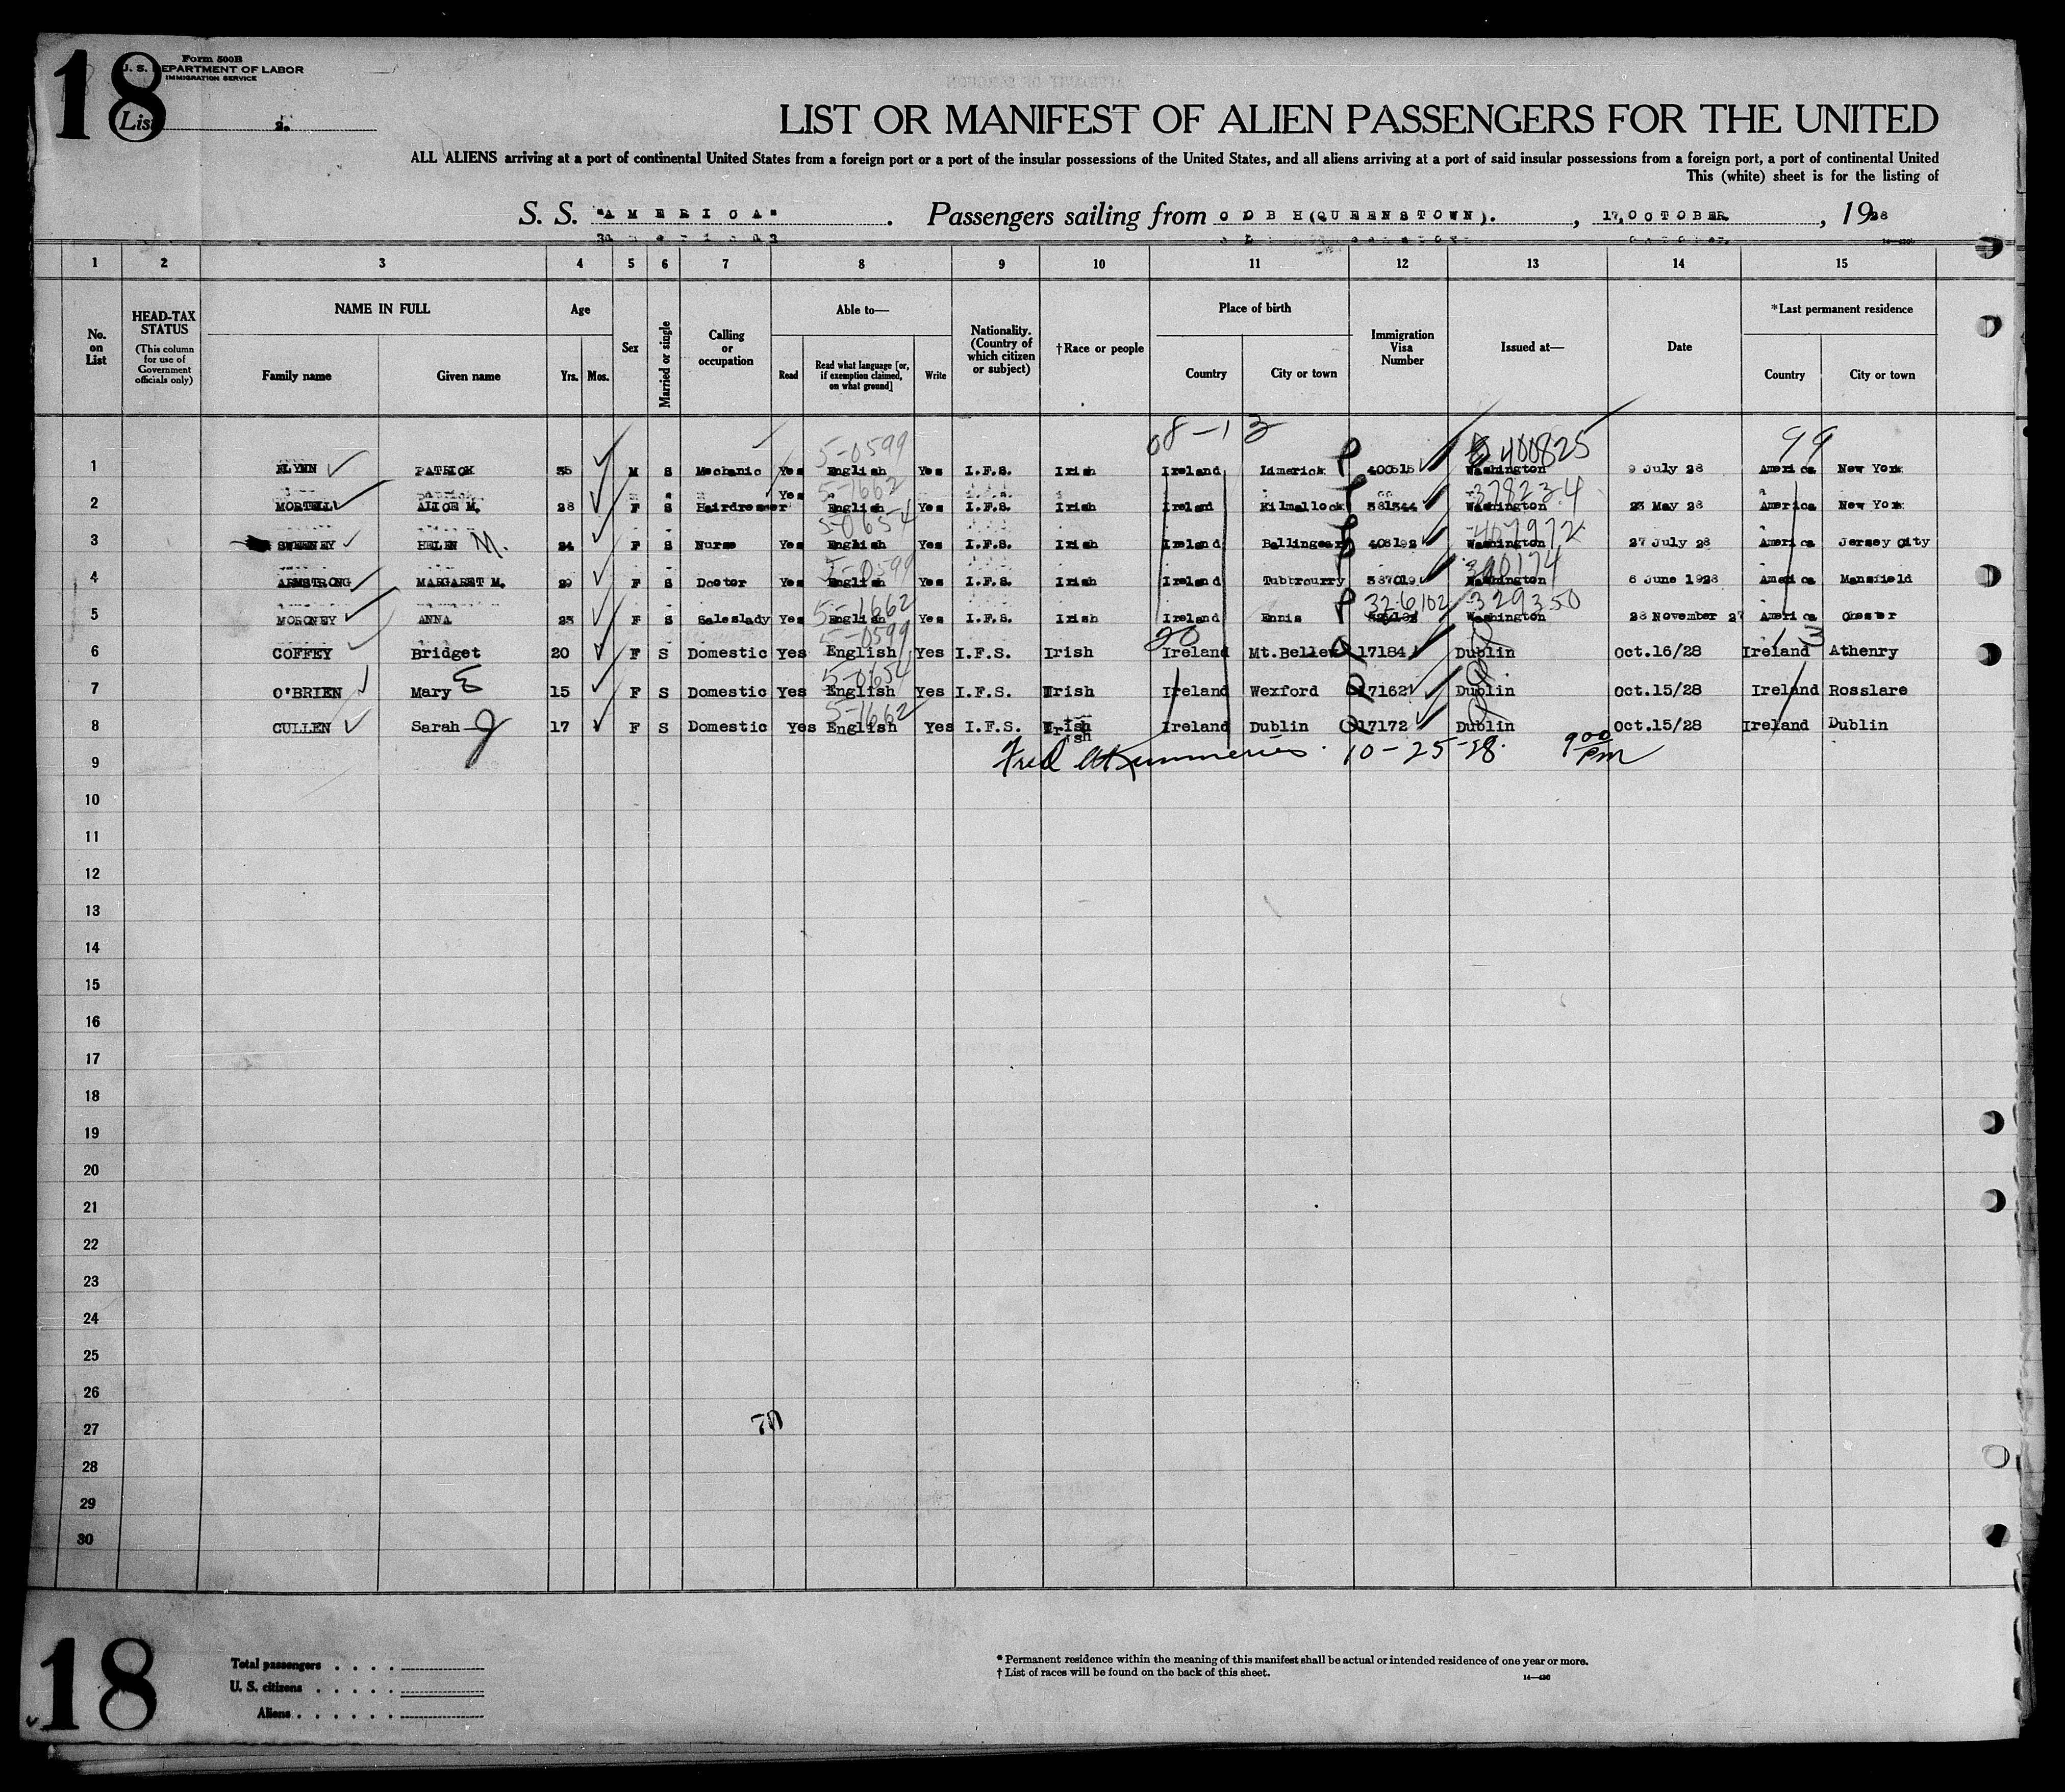 18
Form 500B
U. S. DEPARTMENT OF LABOR
IMMIGRATION SERVICE
List 2.
LIST OR MANIFEST OF ALIEN PASSENGERS FOR THE UNITED
ALL ALIENS arriving at a port of continental United States from a foreign port or a port of the insular possessions of the United States, and all aliens arriving at a port of said insular possessions from a foreign port, a port of continental United
This (white) sheet is for the listing of
S. S. "AMERICA". Passengers sailing from COBH(QUEENSTOWN)., 17, OCTOBER, 1928
1 2 3 4 5 6 7 8 9 10 11 12 13 14 15
No. on List
HEAD-TAX STATUS (This column for use of Government officials only)
NAME IN FULL Family name Given name
Age Yrs. Mos.
Sex
Married or single
Calling or occupation
Able to— Read Read what language [or, if exemption claimed, on what ground] Write
Nationality. (Country of which citizen or subject)
†Race or people
Place of birth Country City or town
Immigration Visa Number
Issued at—
Date
*Last permanent residence Country City or town
08-13 99
5-0599 400825
1 FLYNN PATRICK 35 M S Mechanic Yes English Yes I.F.S. Irish Ireland Limerick P 400515 Washington 9 July 28 America New York
5-1662 378234
2 MORTELL ALICE M. 28 F S Hairdresser Yes English Yes I.F.S. Irish Ireland Kilmallock P 381344 Washington 23 May 28 America New York
5-0654 407972
3 SWEENEY HELEN M. 24 F S Nurse Yes English Yes I.F.S. Irish Ireland Ballingeary 408192 Washington 27 July 28 America Jersey City
5-0599
4 ARMSTRONG MARGARET M. 29 F S Doctor Yes English Yes I.F.S. Irish Ireland Tubbrcurry 387019 Washington 6 June 1928 America Mansfield
5-1662 326102 329350
5 MORONEY ANNA 25 F S Saleslady Yes English Yes I.F.S. Irish Ireland Ennis P Washington 28 November 27 America Chester
5-0599 20 13
6 COFFEY Bridget 20 F S Domestic Yes English Yes I.F.S. Irish Ireland Mt.Bellew Q 17184 Dublin Oct.16/28 Ireland Athenry
5-0654
7 O'BRIEN Mary E 15 F S Domestic Yes English Yes I.F.S. Irish Ireland Wexford Q 17162 Dublin Oct.15/28 Ireland Rosslare
5-1662
8 CULLEN Sarah J 17 F S Domestic Yes English Yes I.F.S. Irish Ireland Dublin Q 17172 Dublin Oct.15/28 Ireland Dublin
9 Fred 10-25-28. 9 00 PM
10
11
12
13
14
15
16
17
18
19
20
21
22
23
24
25
26
27
28
29
30
18
Total passengers
U. S. citizens
Aliens
* Permanent residence within the meaning of this manifest shall be actual or intended residence of one year or more.
† List of races will be found on the back of this sheet.
14—430